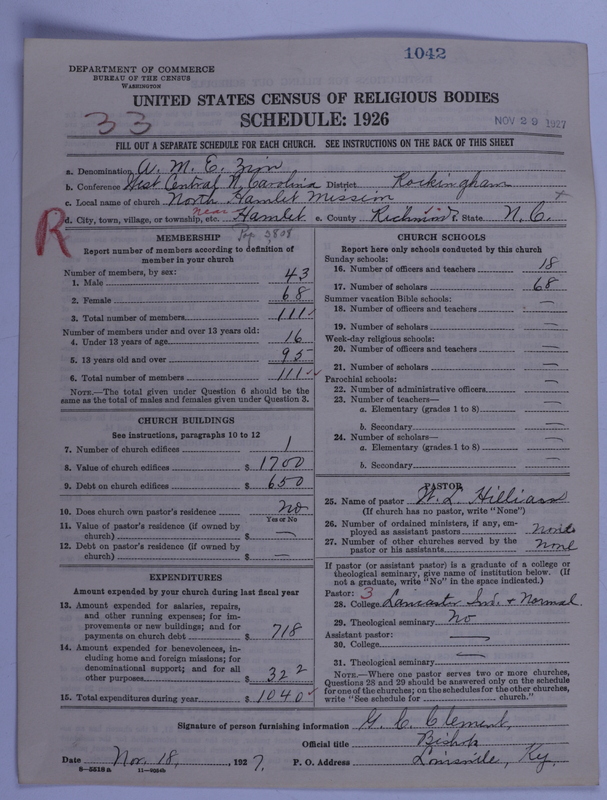 1042
DEPARTMENT OF COMMERCE
BUREAU OF THE CENSUS
WASHINGTON
UNITED STATES CENSUS OF RELIGIOUS BODIES
SCHEDULE: 1926
33
NOV 29 1927
FILL OUT A SEPARATE SCHEDULE FOR EACH CHURCH. SEE INSTRUCTIONS ON THE BACK OF THIS SHEET
a. Denomination A. M. E. Zion
b. Conference West Central N. Carolina District Rockingham
c. Local name of church North Hamlet Mission
d. City, town, village, or township, etc. near Hamlet e. County Richmond State N. C.
R
Pop 3808
MEMBERSHIP
Report number of members according to definition of
member in your church
Number of members, by sex:
1. Male 43
2. Female 68
3. Total number of members 111
Number of members under and over 13 years old:
4. Under 13 years of age 16
5. 13 years old and over 95
6. Total number of members 111
NOTE.—The total given under Question 6 should be the
same as the total of males and females given under Question 3.
CHURCH BUILDINGS
See instructions, paragraphs 10 to 12
7. Number of church edifices 1
8. Value of church edifices $1700
9. Debt on church edifices $650
10. Does church own pastor's residence? no
Yes or No
11. Value of pastor's residence (if owned by
church) $ —
12. Debt on pastor's residence (if owned by
church) $ —
EXPENDITURES
Amount expended by your church during last fiscal year
13. Amount expended for salaries, repairs,
and other running expenses; for im-
provements or new buildings; and for
payments on church debt $ 718
14. Amount expended for benevolences, in-
cluding home and foreign missions; for
denominational support; and for all
other purposes $ 322
15. Total expenditures during year $1040
CHURCH SCHOOLS
Report here only schools conducted by this church
Sunday schools:
16. Number of officers and teachers 18
17. Number of scholars 68
Summer vacation Bible schools:
18. Number of officers and teachers —
19. Number of scholars —
Week-day religious schools:
20. Number of officers and teachers —
21. Number of scholars —
Parochial schools:
22. Number of administrative officers —
23. Number of teachers—
a. Elementary (grades 1 to 8) —
b. Secondary —
24. Number of scholars—
a. Elementary (grades 1 to 8) —
b. Secondary —
PASTOR
25. Name of pastor W. L. Hilliard
(If church has no pastor, write "None")
26. Number of ordained ministers, if any, em-
ployed as assistant pastors None
27. Number of other churches served by the
pastor or his assistants None
If pastor (or assistant pastor) is a graduate of a college or
theological seminary, give name of institution below. (If
not a graduate, write "No" in the space indicated.)
Pastor: 3
28. College Lancaster Ind. + Normal
29. Theological seminary No
Assistant pastor:
30. College —
31. Theological seminary —
NOTE.—Where one pastor serves two or more churches,
Questions 28 and 29 should be answered only on the schedule
for one of the churches; on the schedules for the other churches,
write "See schedule for church."
Signature of person furnishing information G. C. Clement,
Official title Bishop
Date Nov. 18, 1927. P. O. Address Louisville, Ky.